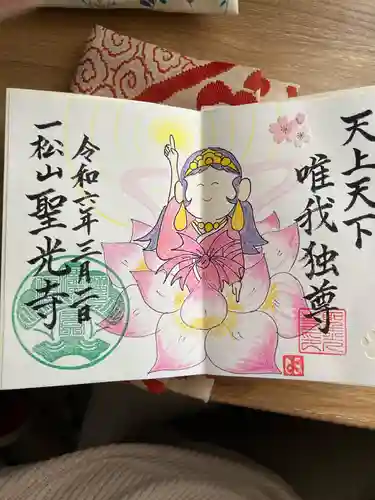 天上天下
唯我独尊
令和六年三月一日
一松山聖光寺